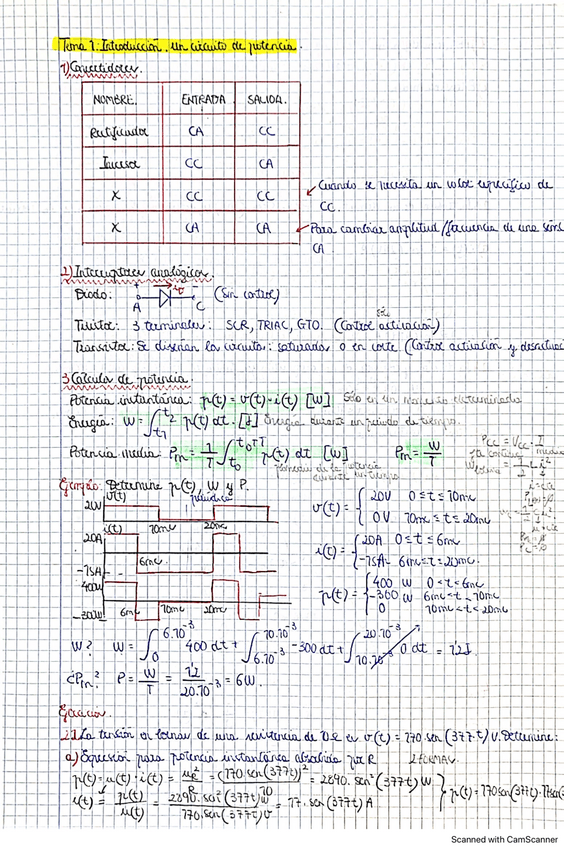 Tema 1: Introducción. Un circuito de potencia.
1) Convertidores.
NOMBRE. ENTRADA SALIDA.
Rectificador CA CC
Inversor CC CA
X CC CC
Cuando se necesita un valor específico de CC.
X CA CA
Para cambiar amplitud/frecuencia de una
CA
2) Interruptores analógicos.
Diodo: A C (sin control)
Tiristor: 3 terminales: SCR, TRIAC, GTO. (Control sólo activación)
Transistor: Se diseñan los circuitos: saturado o en corte (Control activación y
3 Cálculo de potencia.
Potencia instantánea: p(t) = v(t)·i(t) [W] Sólo en un momento determinado
Energía: W = ∫t1 t2 p(t) dt. [J] Energía durante un periodo de tiempo.
Potencia media: Pm = 1/T ∫t0 t0+T p(t) dt [W] Pm = W/T
promedio de la potencia
durante un tiempo
Pcc = Vcc · I media
Ejemplo: Determine p(t), W y P.
v(t) periódica
20V
10ms 20ms
v(t) = { 20V 0≤t≤10ms
0V 10ms≤t≤20ms
i(t)
20A
6ms
-15A
i(t) = { 20A 0≤t≤6ms
-15A 6ms≤t≤20ms.
400W
-300W 6ms 10ms 20ms
p(t) = { 400 W 0<t<6ms
-300 W 6ms<t<10ms
0 10ms<t<20ms
W? W = ∫0 6·10⁻³ 400 dt + ∫6·10⁻³ 10·10⁻³ -300 dt + ∫10·10⁻³ 20·10⁻³ 0 dt = 1'2J.
¿Pm? P = W/T = 1'2/20·10⁻³ = 6W.
Ejercicios.
2.1 La tensión en bornas de una resistencia de 10Ω es v(t) = 170·sen(377·t) V. Determine:
a) Expresión para potencia instantánea absorbida por R 2 FORMAS.
p(t) = u(t)·i(t) = = (170·sen(377t))²/10 = 2890·sen²(377t) W
i(t) = p(t)/u(t) = 2890·sen²(377t)W/170·sen(377t)V = 17·sen(377t) A
p(t) = 170sen(377t)·17sen(3
Scanned with CamScanner